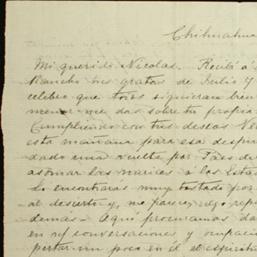 Chihuahua
Mi querido Nicolas. Recibí
Rancho tus gratas de Julio y
celebro que todos siguieran bien
menor me das sobre tu propia
Cumpliendo con tus deseos
esta mañana para esa despu
dado una vuelta por
asomar las narices a los Esta
Lo encontraras muy
al desierto y, me parece, algo repu
demas. Aqui procuramos da
en conversaciones y
pertar un poco en él el espiritu